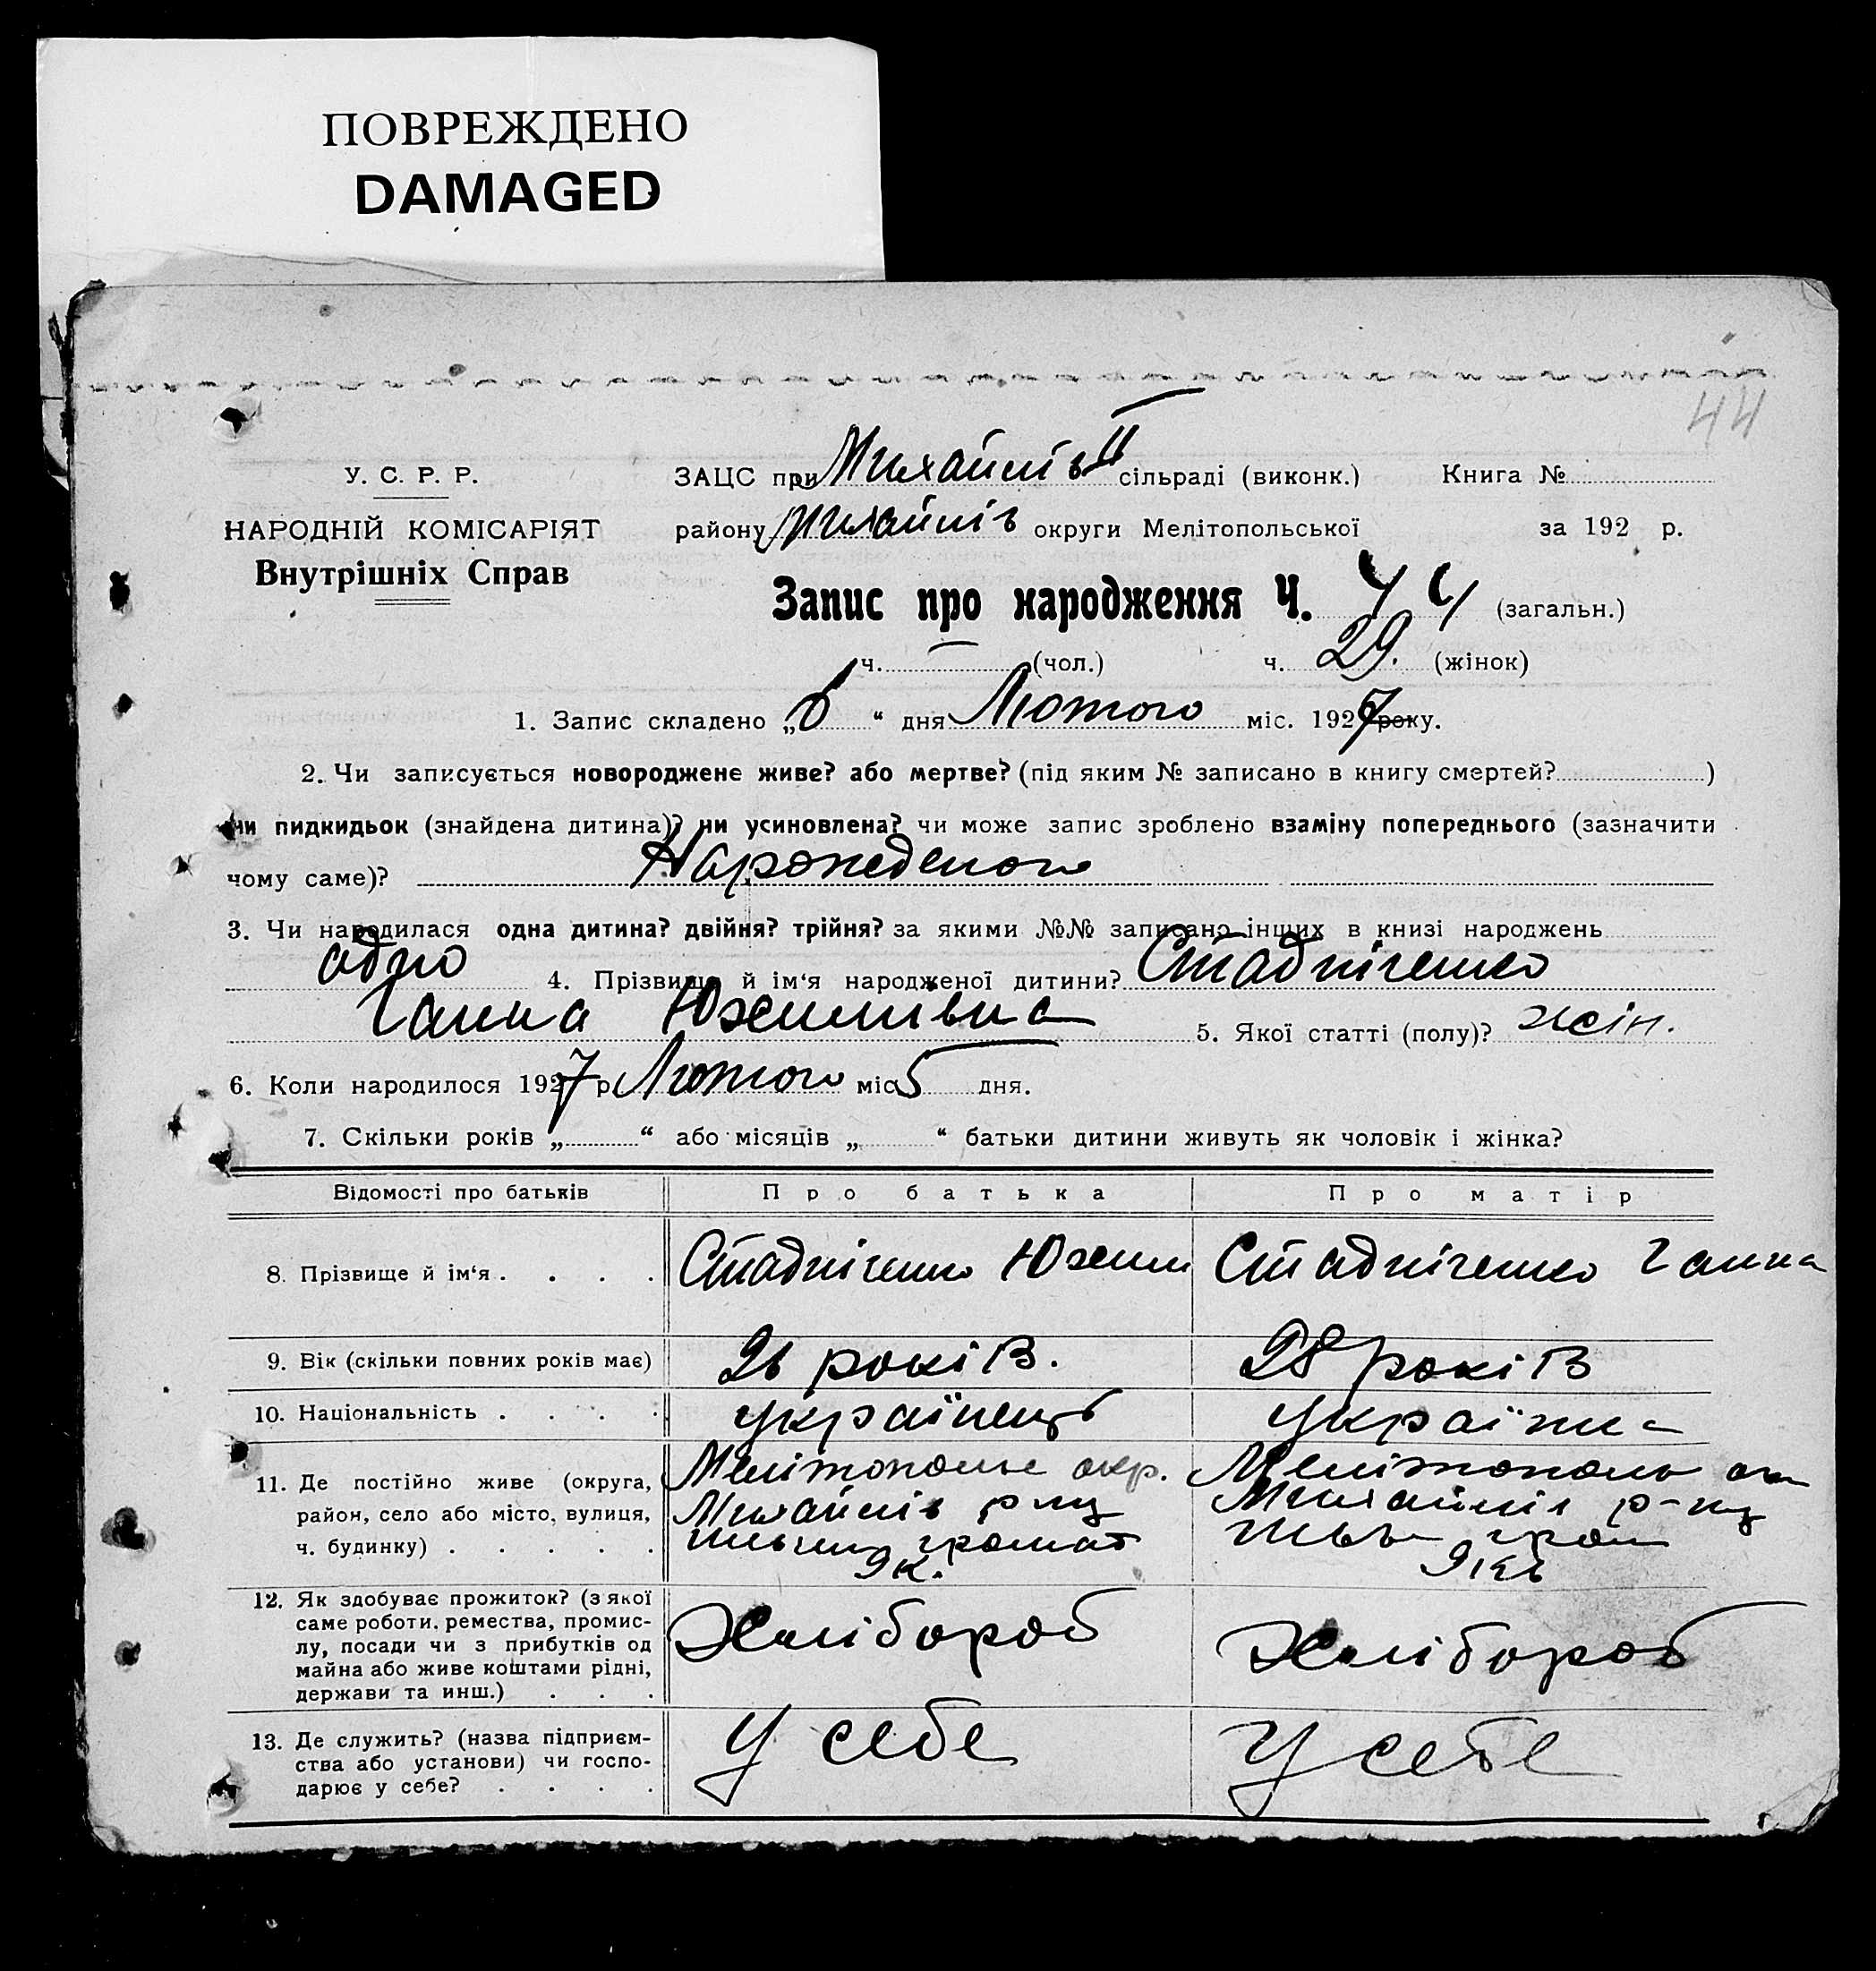 ПОВРЕЖДЕНО
DAMAGED
44
У. С. Р. Р.
НАРОДНІЙ КОМІСАРІЯТ
Внутрішніх Справ
ЗАЦС при Михайлів II сільраді (виконк.) Книга №
району Михайлів округи Мелітопольської за 192 р.
Запис про народження Ч. 44 (загальн.)
ч. — (чол.) ч. 29. (жінок)
1. Запис складено „6“ дня Лютого міс. 1927 року.
2. Чи записується новороджене живе? або мертве? (під яким № записано в книгу смертей? )
чи пидкидьок (знайдена дитина)? чи усиновлена? чи може запис зроблено взаміну попереднього (зазначити
чому саме)? Нарожденого
3. Чи народилася одна дитина? двійня? трійня? за якими №№ записано інших в книзі народжень
одно 4. Прізвище й ім‘я народженої дитини? Стадніченко
Ганна Юхимівна 5. Якої статті (полу)? жін.
6. Коли народилося 1927 р. Лютого міс 5 дня.
7. Скільки років „ “ або місяців „ “ батьки дитини живуть як чоловік і жінка?
Відомості про батьків Про батька Про матір
8. Прізвище й ім‘я . . . . Стадніченко Юхим Стадніченко Ганна
9. Вік (скільки повних років має) 26 років. 28 років
10. Національність . . . . українець українка
11. Де постійно живе (округа, район, село або місто, вулиця, ч. будинку) . . . . .
Мелітопольс окр. Мелітополь
Михайлів р-ну Михайлів р-ну
громат
12. Як здобуває прожиток? (з якої
саме роботи, ремества, промис-
лу, посади чи з прибутків од
майна або живе коштами рідні,
держави та инш.) . . .
Хлібороб Хлібороб
13. Де служить? (назва підприєм-
ства або установи) чи госпо-
дарює у себе? . . . .
У себе У себе